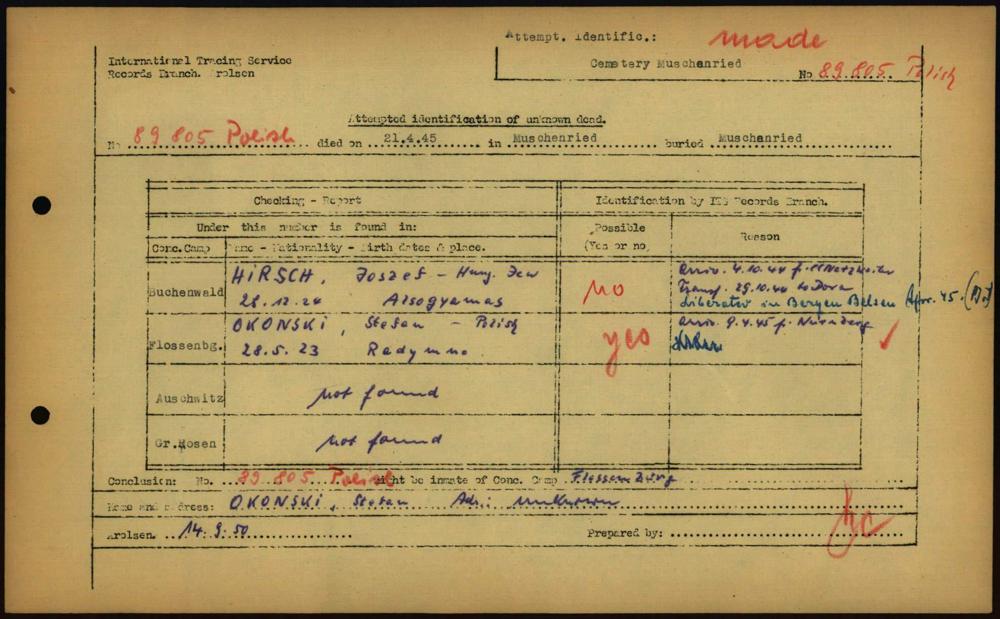 Attempt. Identific.: made
International Tracing Service
Records Branch. Arolsen
Cemetery Muschenried
No 89.805 Polish
Attempted identification of unknown dead.
No 89 805 Polish died on 21.4.45 in Muschenried buried Muschanried
Checking - Report Identification by ITS Records Branch.
Under this number is found in: Possible (Yes or no) Reason
Conc.Camp Name - Nationality - Birth dates & place.
Buchenwald HIRSCH, Joszef - Hung. Jew no Arriv. 4.10.44 f.
28.12.24 Transf. 29.10.44 to Dora
Liberated in Bergen Belsen Apr. 45.
Flossenbg. OKONSKI, Stefan - Polish yes Arriv. 9.4.45 f. Nürnberg
28.5.23 Radymno
Auschwitz not found
Gr.Rosen not found
Conclusion: No. 89 805 Polish might be inmate of Conc. Camp Flossenbürg
Name and address: OKONSKI, Stefan Adr.: unknown
Arolsen. 14.9.50 Prepared by: